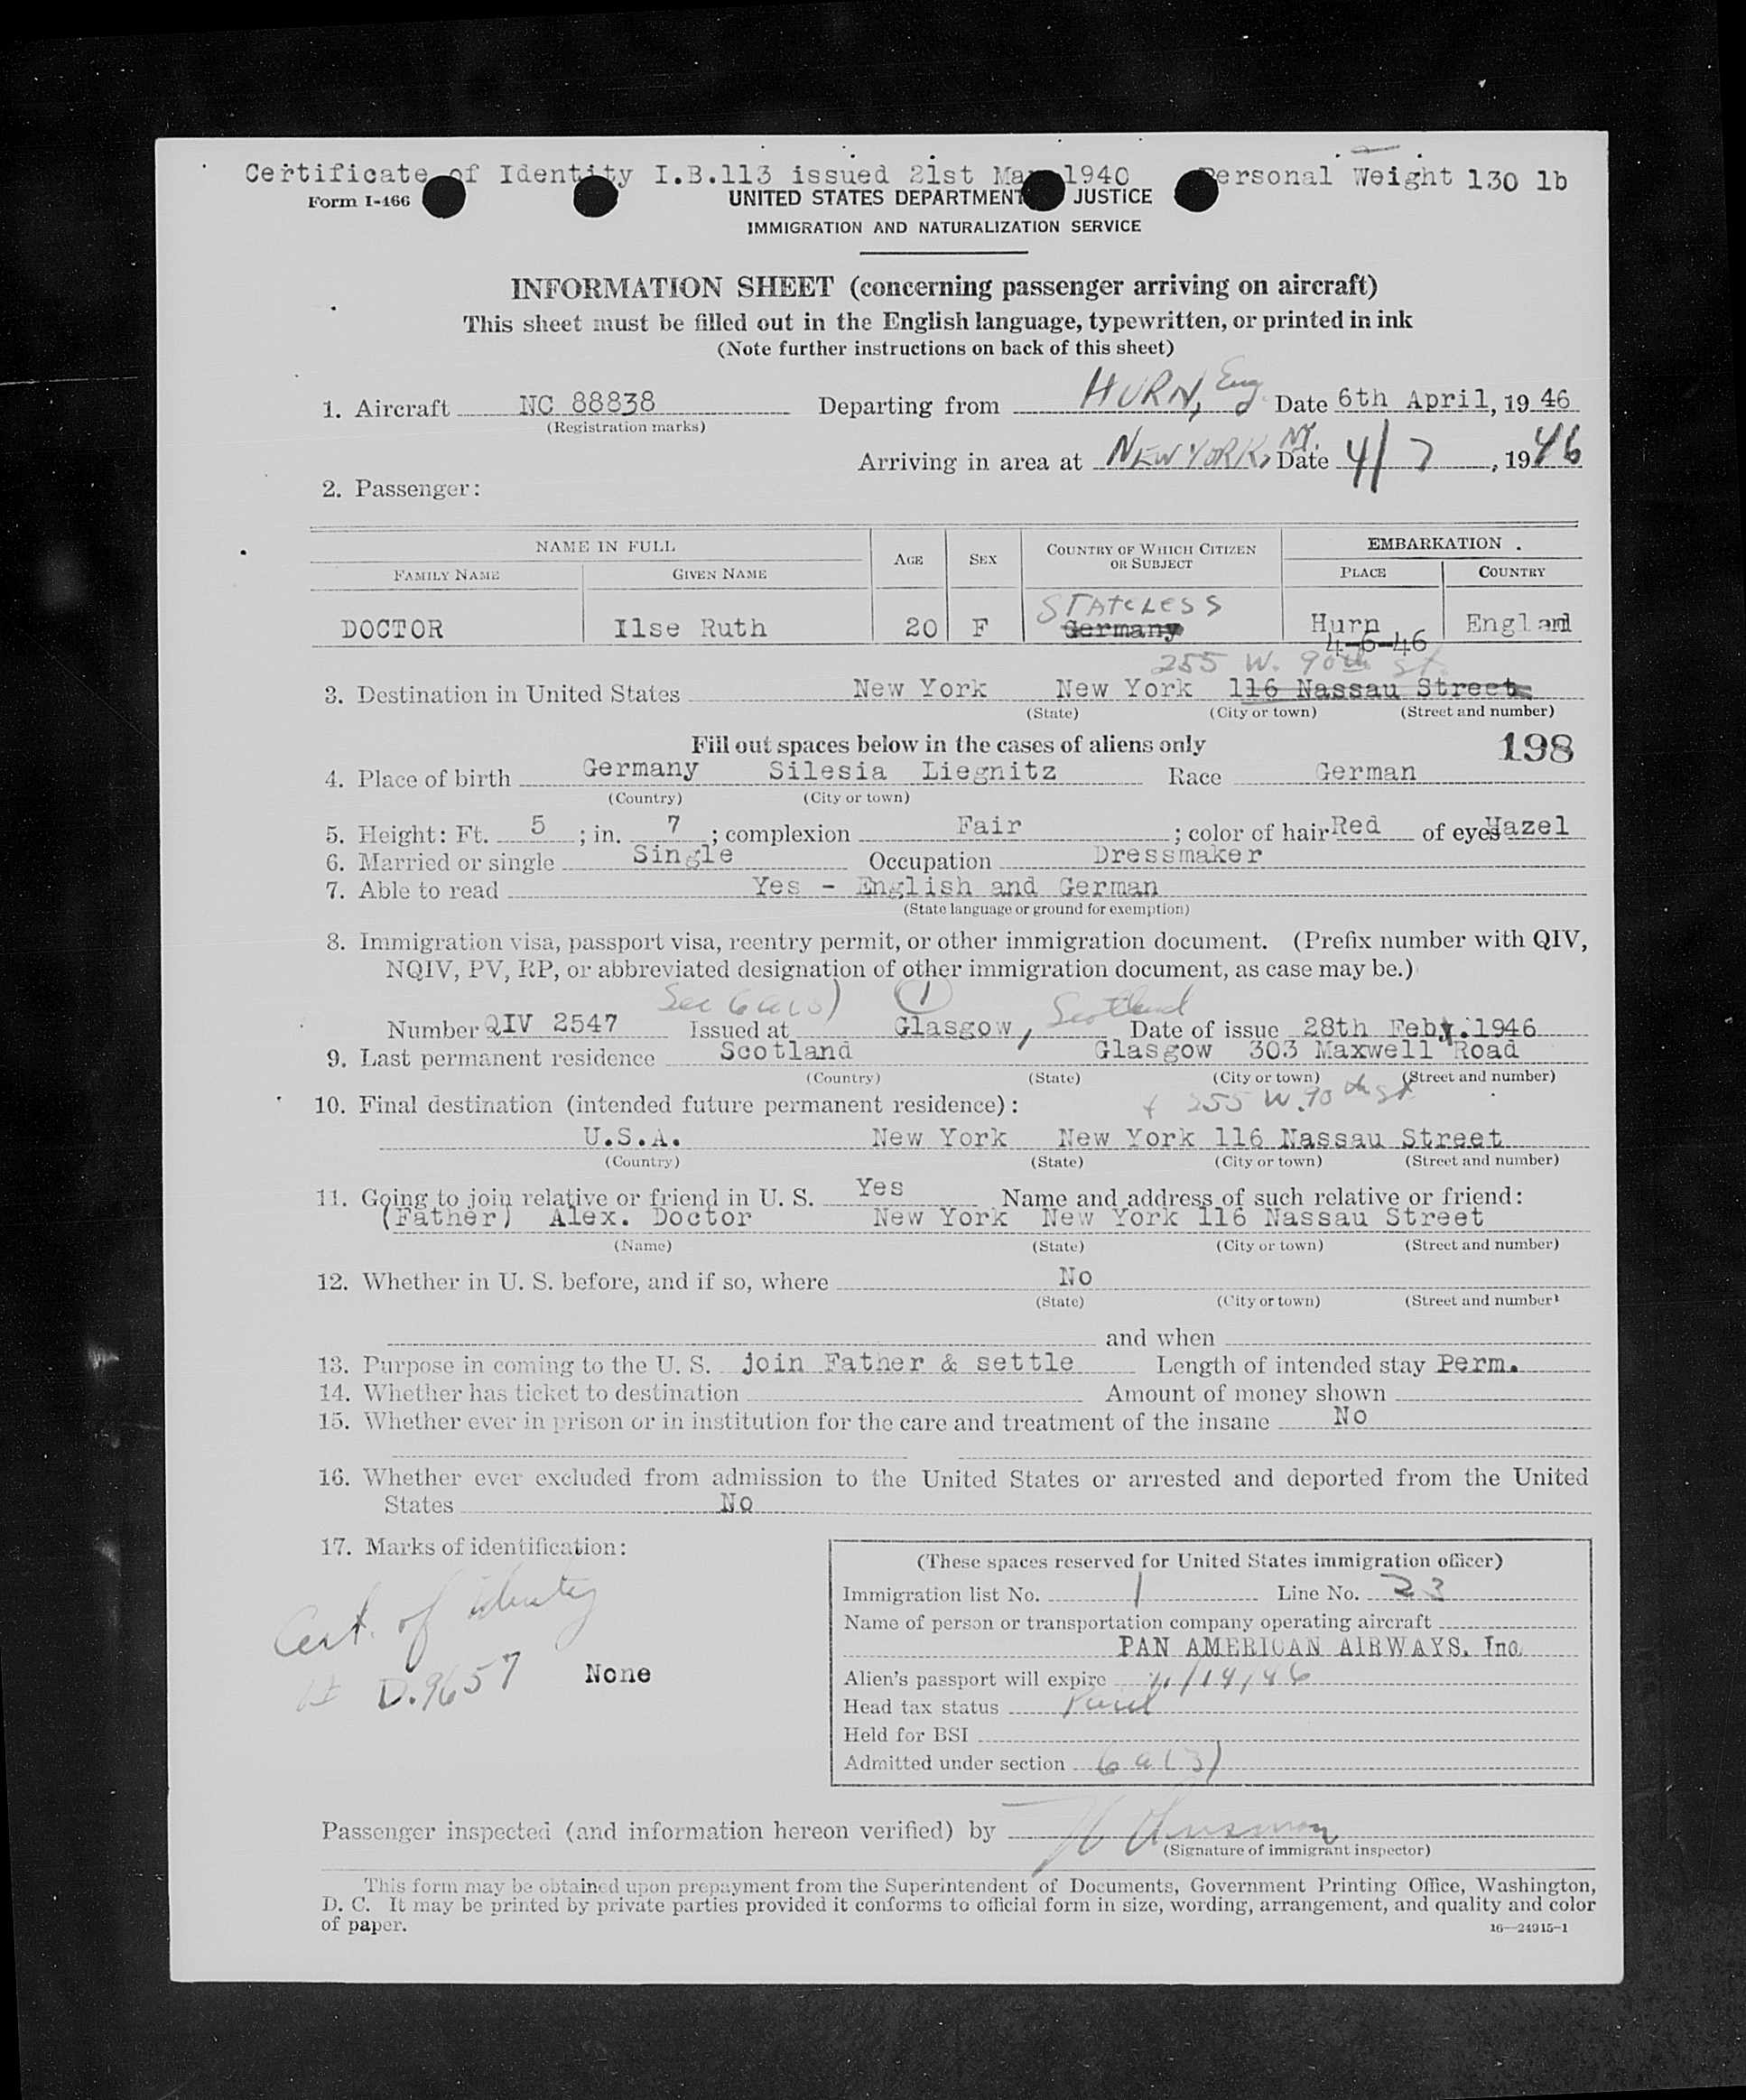 Certificate of Identity I.B.113 issued 21st Ma 1940 Personal Weight 130 lb
Form I-466
UNITED STATES DEPARTMENT JUSTICE
IMMIGRATION AND NATURALIZATION SERVICE
INFORMATION SHEET (concerning passenger arriving on aircraft)
This sheet must be filled out in the English language, typewritten, or printed in ink
(Note further instructions on back of this sheet)
1. Aircraft NC 88838 Departing from HURN, Eng. Date 6th April, 19 46
(Registration marks)
Arriving in area at NEW YORK, NY. Date 4/7, 1946
2. Passenger:
NAME IN FULL AGE SEX COUNTRY OF WHICH CITIZEN OR SUBJECT EMBARKATION
FAMILY NAME GIVEN NAME PLACE COUNTRY
STATELESS
DOCTOR Ilse Ruth 20 F Germany Hurn England
4-6-46
255 W. 90th St
3. Destination in United States New York New York 116 Nassau Street
(State) (City or town) (Street and number)
Fill out spaces below in the cases of aliens only 198
4. Place of birth Germany Silesia Liegnitz Race German
(Country) (City or town)
5. Height: Ft. 5 ; in. 7 ; complexion Fair ; color of hair Red of eyes Hazel
6. Married or single Single Occupation Dressmaker
7. Able to read Yes - English and German
(State language or ground for exemption)
8. Immigration visa, passport visa, reentry permit, or other immigration document. (Prefix number with QIV,
NQIV, PV, RP, or abbreviated designation of other immigration document, as case may be.)
Sec 6a(3) 1 Scotland
Number QIV 2547 Issued at Glasgow, Date of issue 28th Feby. 1946
9. Last permanent residence Scotland Glasgow 303 Maxwell Road
(Country) (State) (City or town) (Street and number)
10. Final destination (intended future permanent residence): 255 W. 90th St
U.S.A. New York New York 116 Nassau Street
(Country) (State) (City or town) (Street and number)
11. Going to join relative or friend in U. S. Yes Name and address of such relative or friend:
(Father) Alex. Doctor New York New York 116 Nassau Street
(Name) (State) (City or town) (Street and number)
12. Whether in U. S. before, and if so, where No
(State) (City or town) (Street and number)
and when
13. Purpose in coming to the U. S. join Father & settle Length of intended stay Perm.
14. Whether has ticket to destination Amount of money shown
15. Whether ever in prison or in institution for the care and treatment of the insane No
16. Whether ever excluded from admission to the United States or arrested and deported from the United
States No
17. Marks of identification:
Cert. of identity
D.9657 None
(These spaces reserved for United States immigration officer)
Immigration list No. 1 Line No. 23
Name of person or transportation company operating aircraft
PAN AMERICAN AIRWAYS, Inc.
Alien's passport will expire /14/46
Head tax status Paid
Held for BSI
Admitted under section 6a(3)
Passenger inspected (and information hereon verified) by
(Signature of immigrant inspector)
This form may be obtained upon prepayment from the Superintendent of Documents, Government Printing Office, Washington,
D. C. It may be printed by private parties provided it conforms to official form in size, wording, arrangement, and quality and color
of paper. 16—24915-1